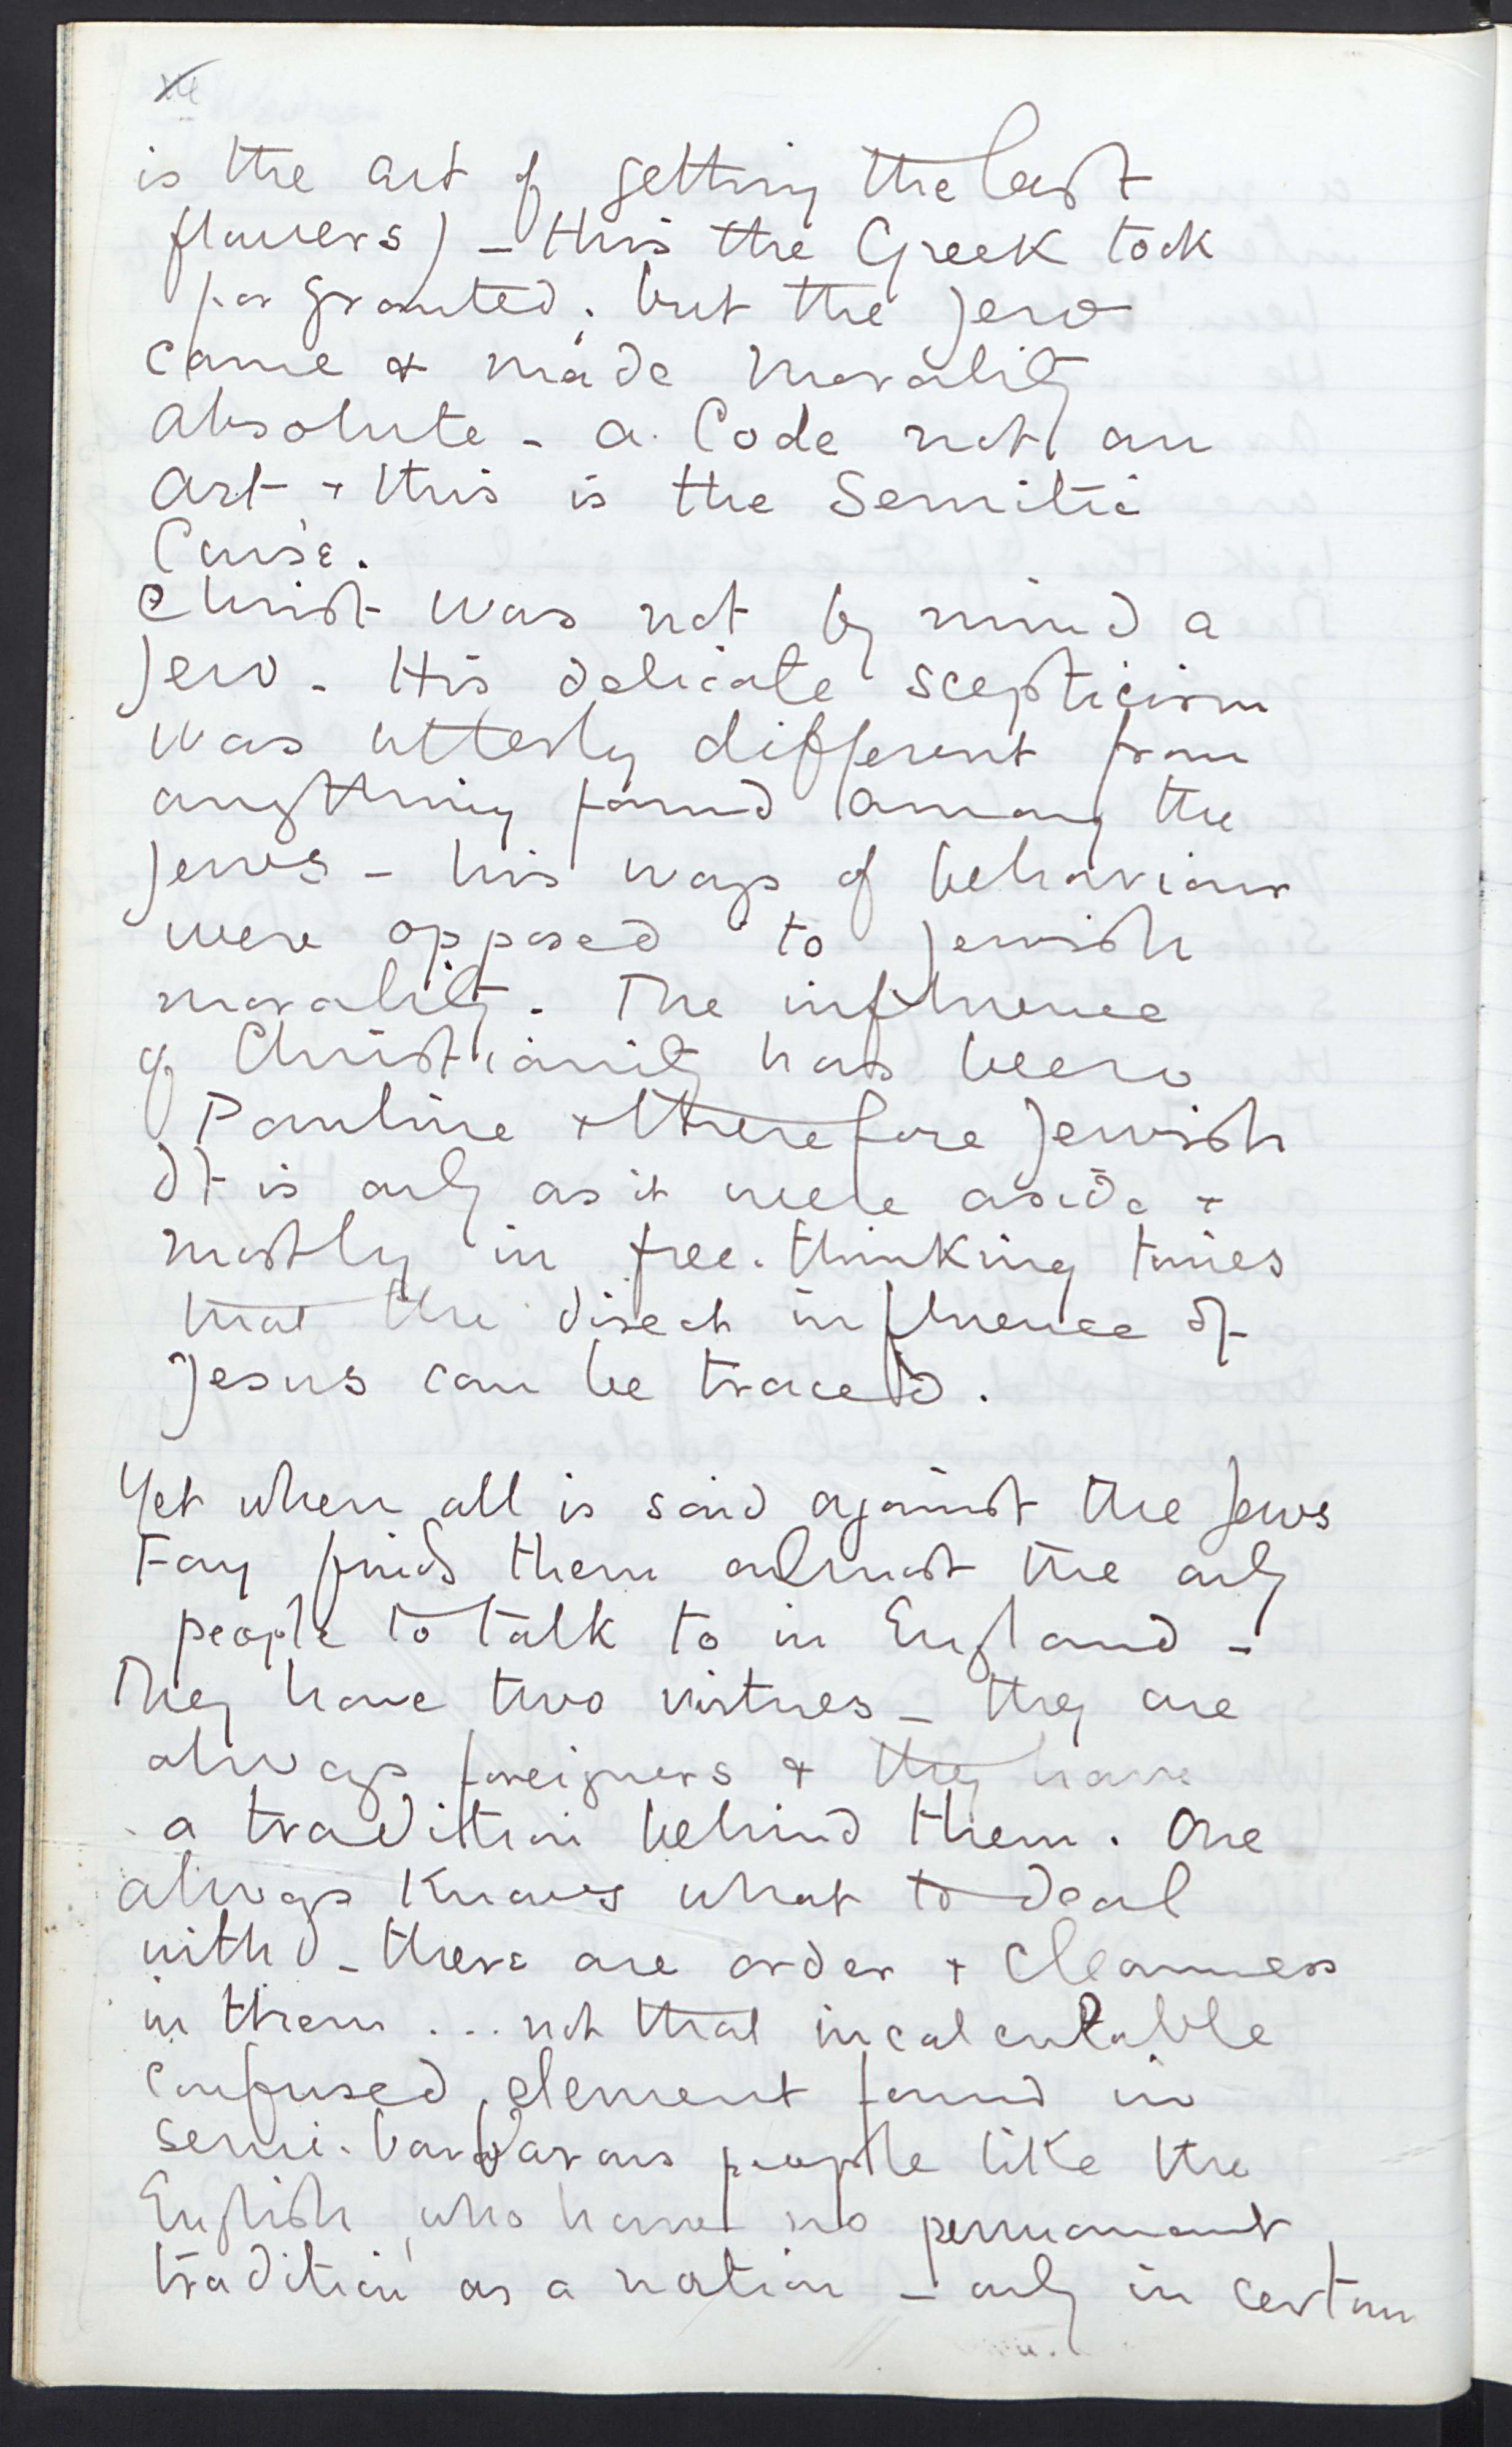 is the art of getting the best
flowers) - this the Greek took
for granted; but the Jew
came & made morality
absolute - a Code not an
art & this is the Semitic
Curse.
Christ was not by mind a
Jew - His delicate scepticism
was utterly different from
anything found among the
Jews - his ways of behaviour
were opposed to Jewish
morality. The influence
of Christianity has been
Pauline & therefore Jewish
It is only as it were aside &
mostly in free-thinking times
that the direct influence of
Jesus can be traced.
Yet when all is said against the Jews
Fay finds them almost the only
people to talk to in England -
They have two virtues - they are
always foreigners & they have
a tradition behind them. One
always knows what to deal
with - there are order & cleanness
in them ... not that incalculable
confused element found in
semi-barbarous people like the
English, who have no permanent
tradition as a nation - only in certain